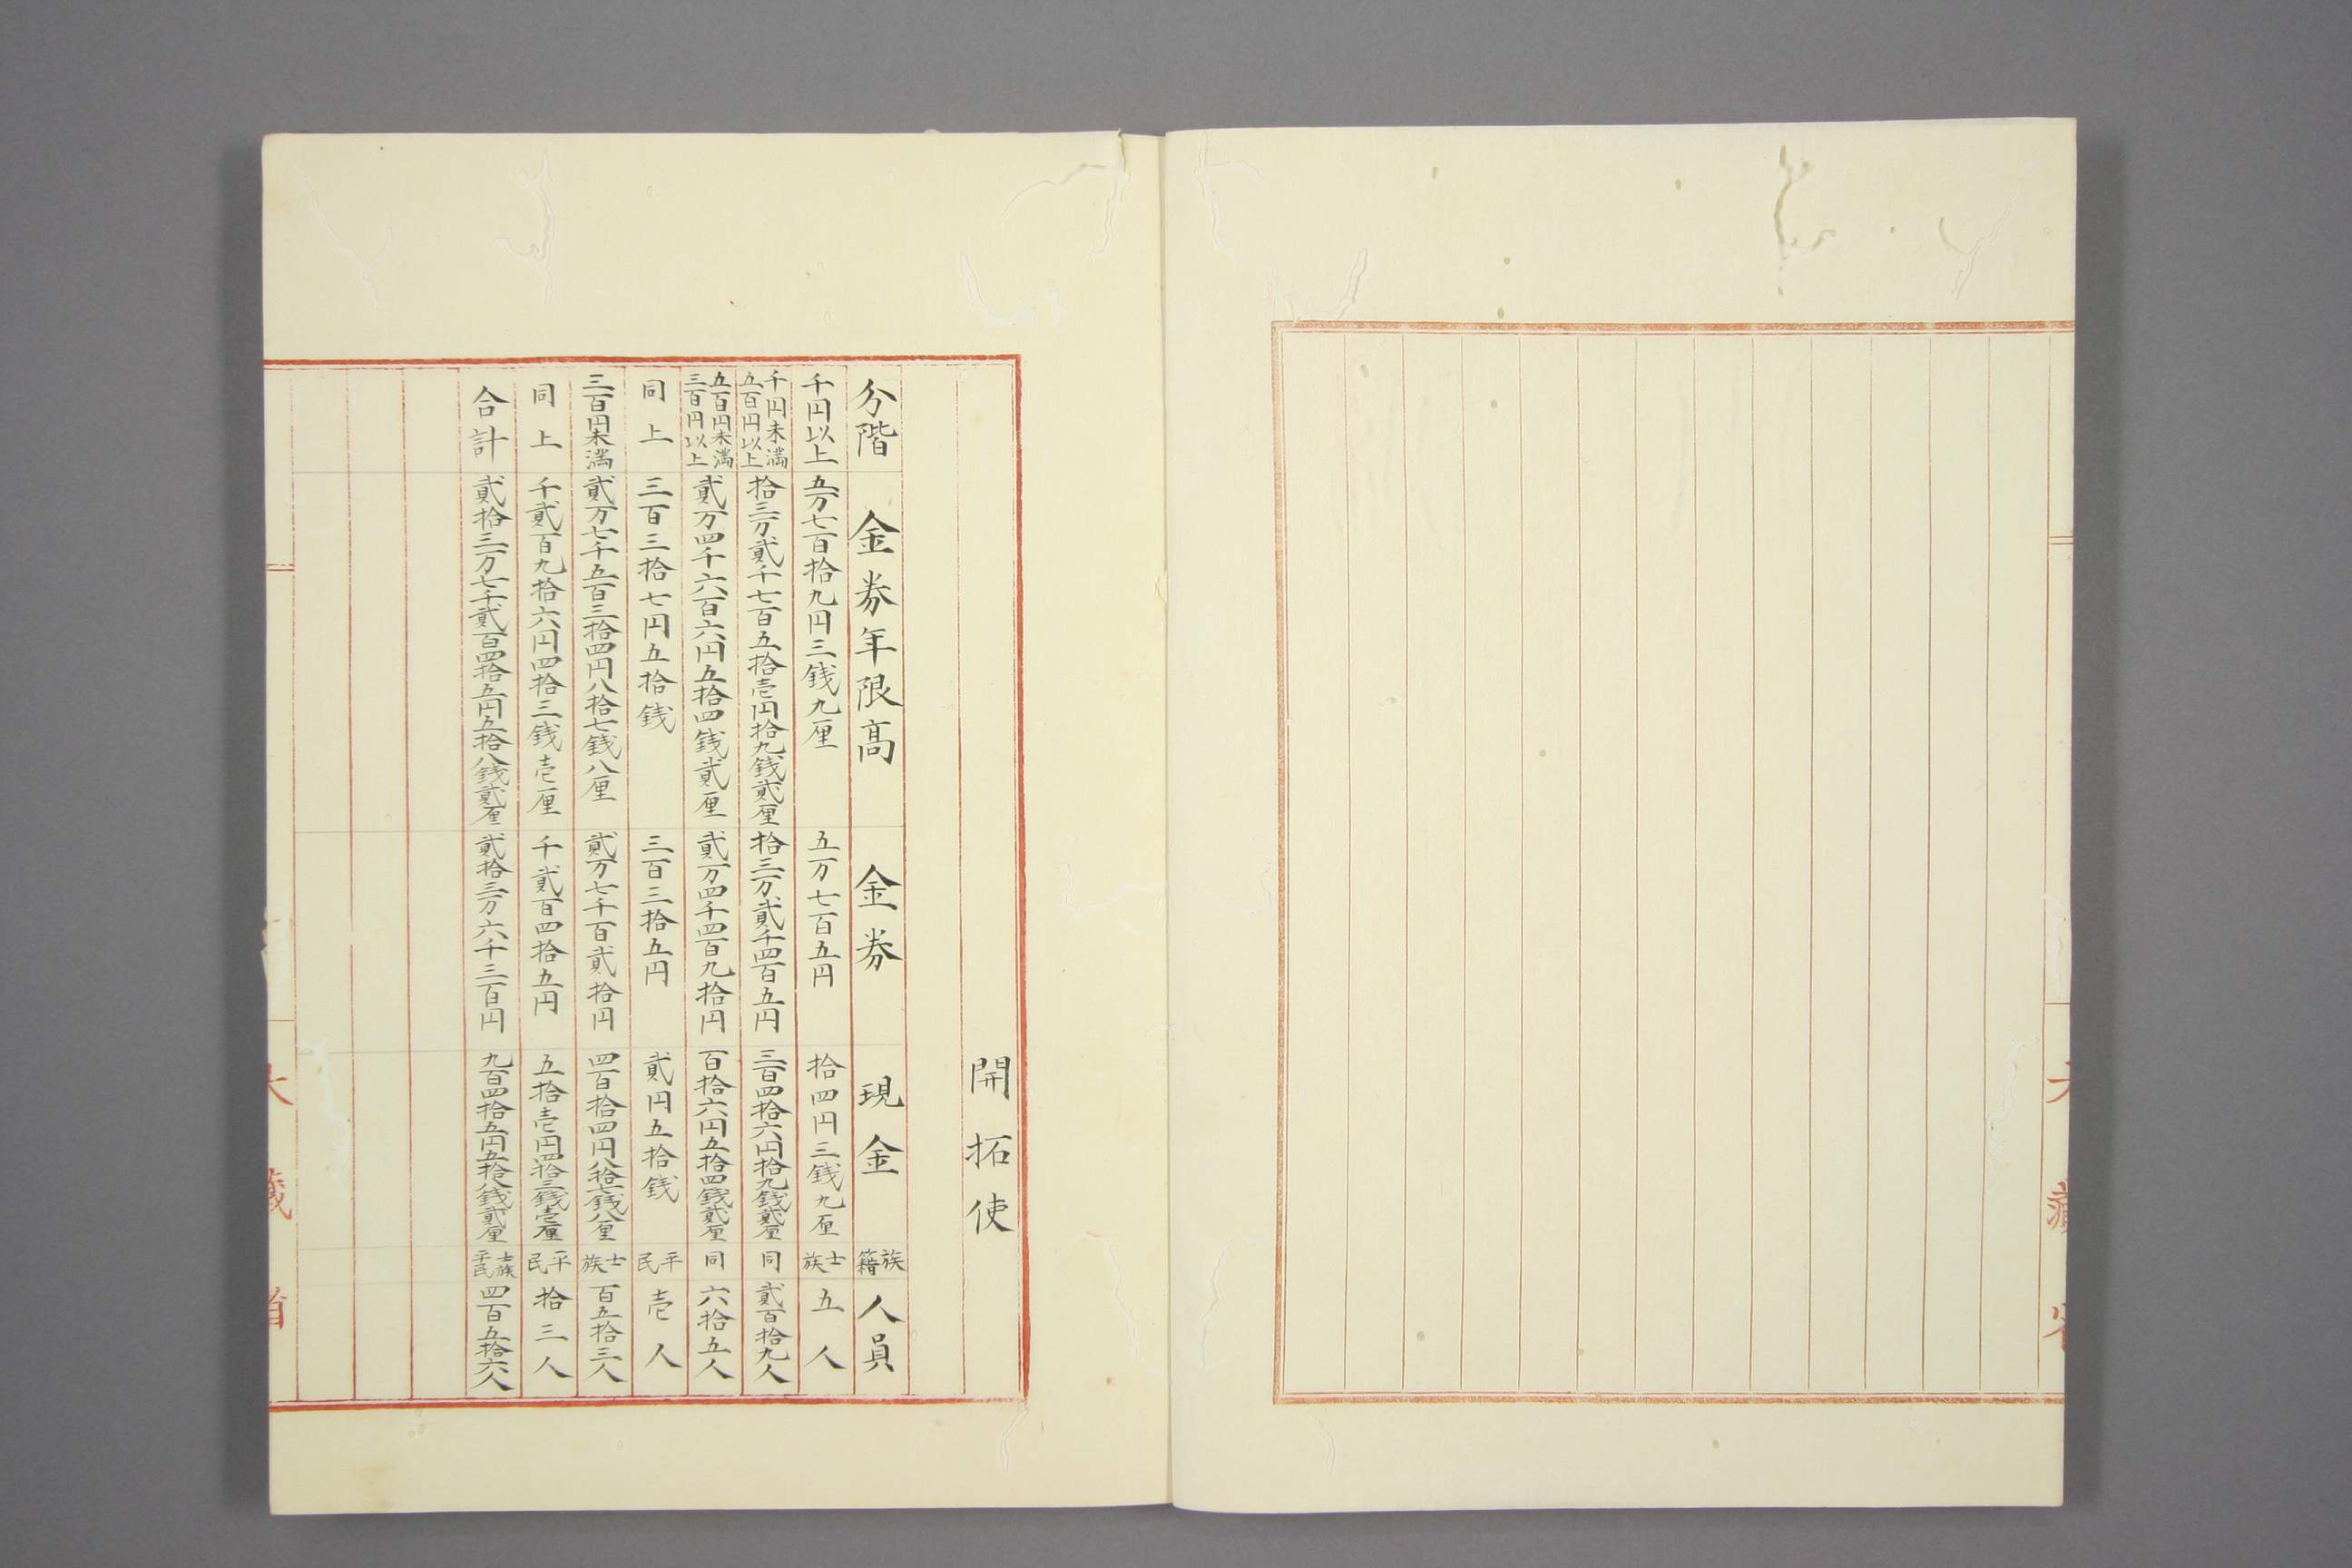 大藏省
開拓使
分階 金券年限高 金券 現金 族籍 人員
千円以上 五万七百拾九円三銭九厘 五万七百五円 拾四円三銭九厘 士族 五人
千円未満五百円以上 拾三万貳千七百五拾壱円拾九銭貳厘 拾三万貳千四百五円 三百四拾六円拾九銭貳厘 同 貳百拾九人
五百円未満三百円以上 貳万四千六百六円五拾四銭貳厘 貳万四千四百九拾円 百拾六円五拾四銭貳厘 同 六拾五人
同上 三百三拾七円五拾銭 三百三拾五円 貳円五拾銭 平民 壱人
三百円未満 貳万七千五百三拾四円八拾七銭八厘 貳万七千百貳拾円 四百拾四円八拾七銭八厘 士族 百五拾三人
同上 千貳百九拾六円四拾三銭壱厘 千貳百四拾五円 五拾壱円四拾三銭壱厘 平民 拾三人
合計 貳拾三万七千貳百四拾五円五拾八銭貳厘 貳拾三万六千三百円 九百四拾五円五拾八銭貳厘 士族平民 四百五拾六人
大藏省